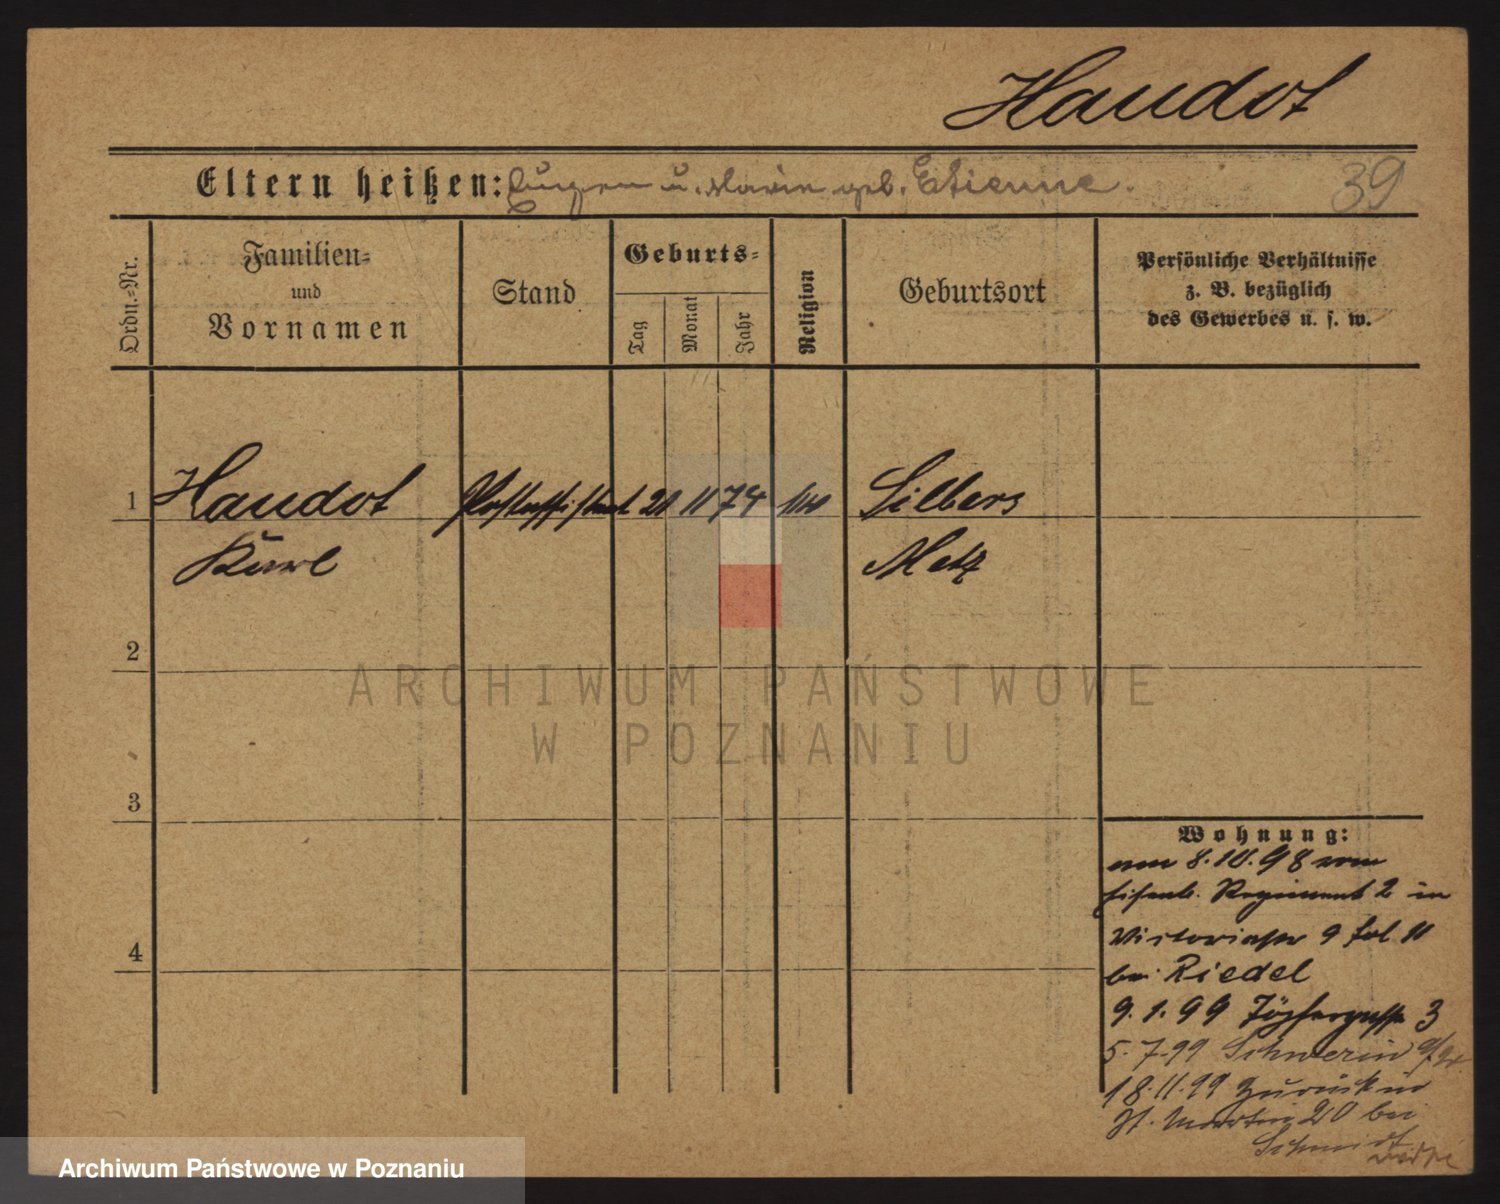 Handot
Eltern heißen: Eugen u. Marie geb. Etienne.
39
Ordn.-Nr.
Familien-
und
Vornamen
Stand
Geburts-
Tag
Monat
Jahr
Religion
Geburtsort
Persönliche Verhältnisse
z. B. bezüglich
des Gewerbes u. s. w.
1 Handot Postassistent 21 11 74 Silbers
Karl Metz
2
3
4
Wohnung:
am 8.10.98 vom
Eisenb. Regiment 2 in
Victoriastr 9 fol 11
bei Riedel
9.1.99 Töpfergasse 3
5.7.99 Schwerin a/W.
18.11.99 zurück in
St. Martin 20 bei
Schmidt
ARCHIWUM PAŃSTWOWE
W POZNANIU
Archiwum Państwowe w Poznaniu